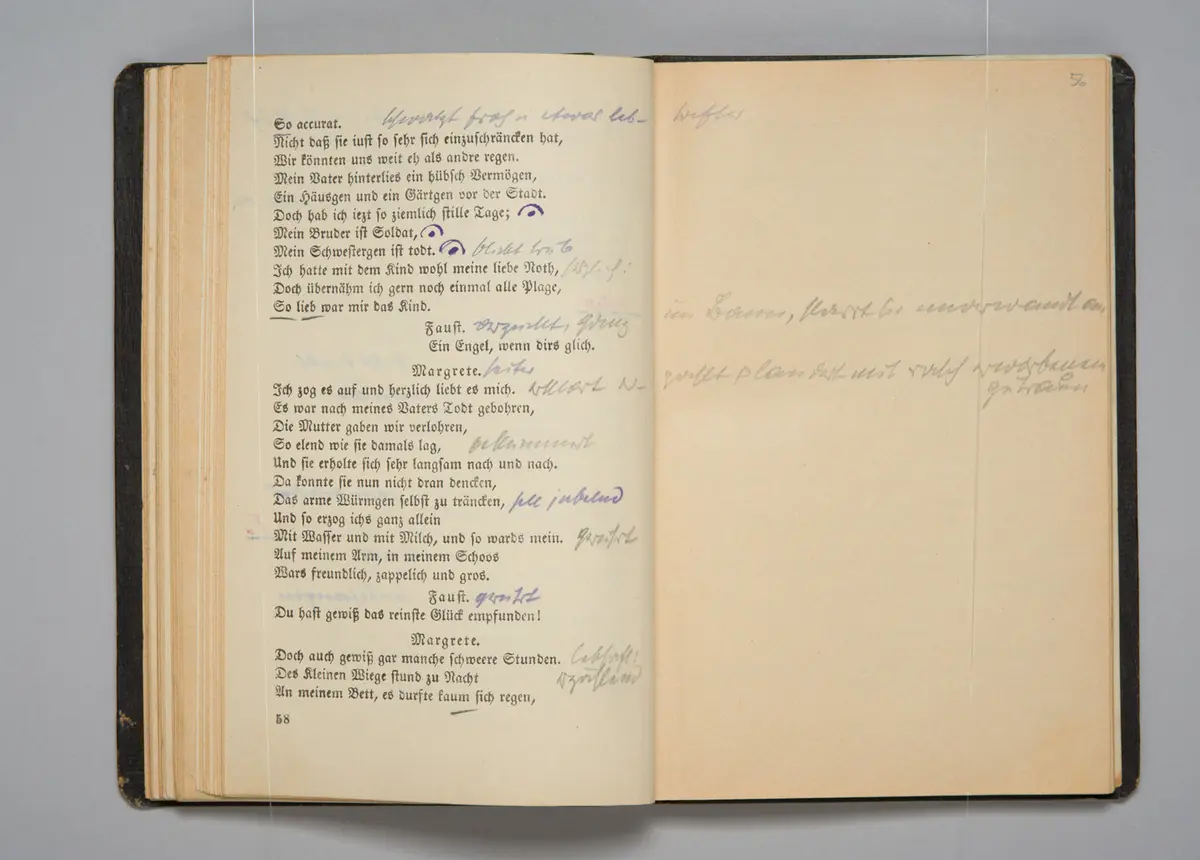 So accurat. schwatzt froh u etwas leb-
Nicht daß sie iust so sehr sich einzuschräncken hat,
Wir könnten uns weit eh als andre regen.
Mein Vater hinterlies ein hübsch Vermögen,
Ein Häusgen und ein Gärtgen vor der Stadt.
Doch hab ich iezt so ziemlich stille Tage;
Mein Bruder ist Soldat,
Mein Schwestergen ist todt. blickt trüb
Ich hatte mit dem Kind wohl meine liebe Noth,
Doch übernähm ich gern noch einmal alle Plage,
So lieb war mir das Kind.
Faust. ganz
Ein Engel, wenn dirs glich.
Margrete. heiter
Ich zog es auf und herzlich liebt es mich. erklärt
Es war nach meines Vaters Todt gebohren,
Die Mutter gaben wir verlohren,
So elend wie sie damals lag, bekümmert
Und sie erholte sich sehr langsam nach und nach.
Da konnte sie nun nicht dran dencken,
Das arme Würmgen selbst zu träncken, hell jubelnd
Und so erzog ichs ganz allein
Mit Wasser und mit Milch, und so wards mein. gerührt
Auf meinem Arm, in meinem Schoos
Wars freundlich, zappelich und gros.
Faust. gerührt
Du hast gewiß das reinste Glück empfunden!
Margrete.
Doch auch gewiß gar manche schweere Stunden. lebhaft:
Des Kleinen Wiege stund zu Nacht erzählend
An meinem Bett, es durfte kaum sich regen,
58
56
im Bann, starrt sie unverwandt an
plaudert mit rasch erworbenem